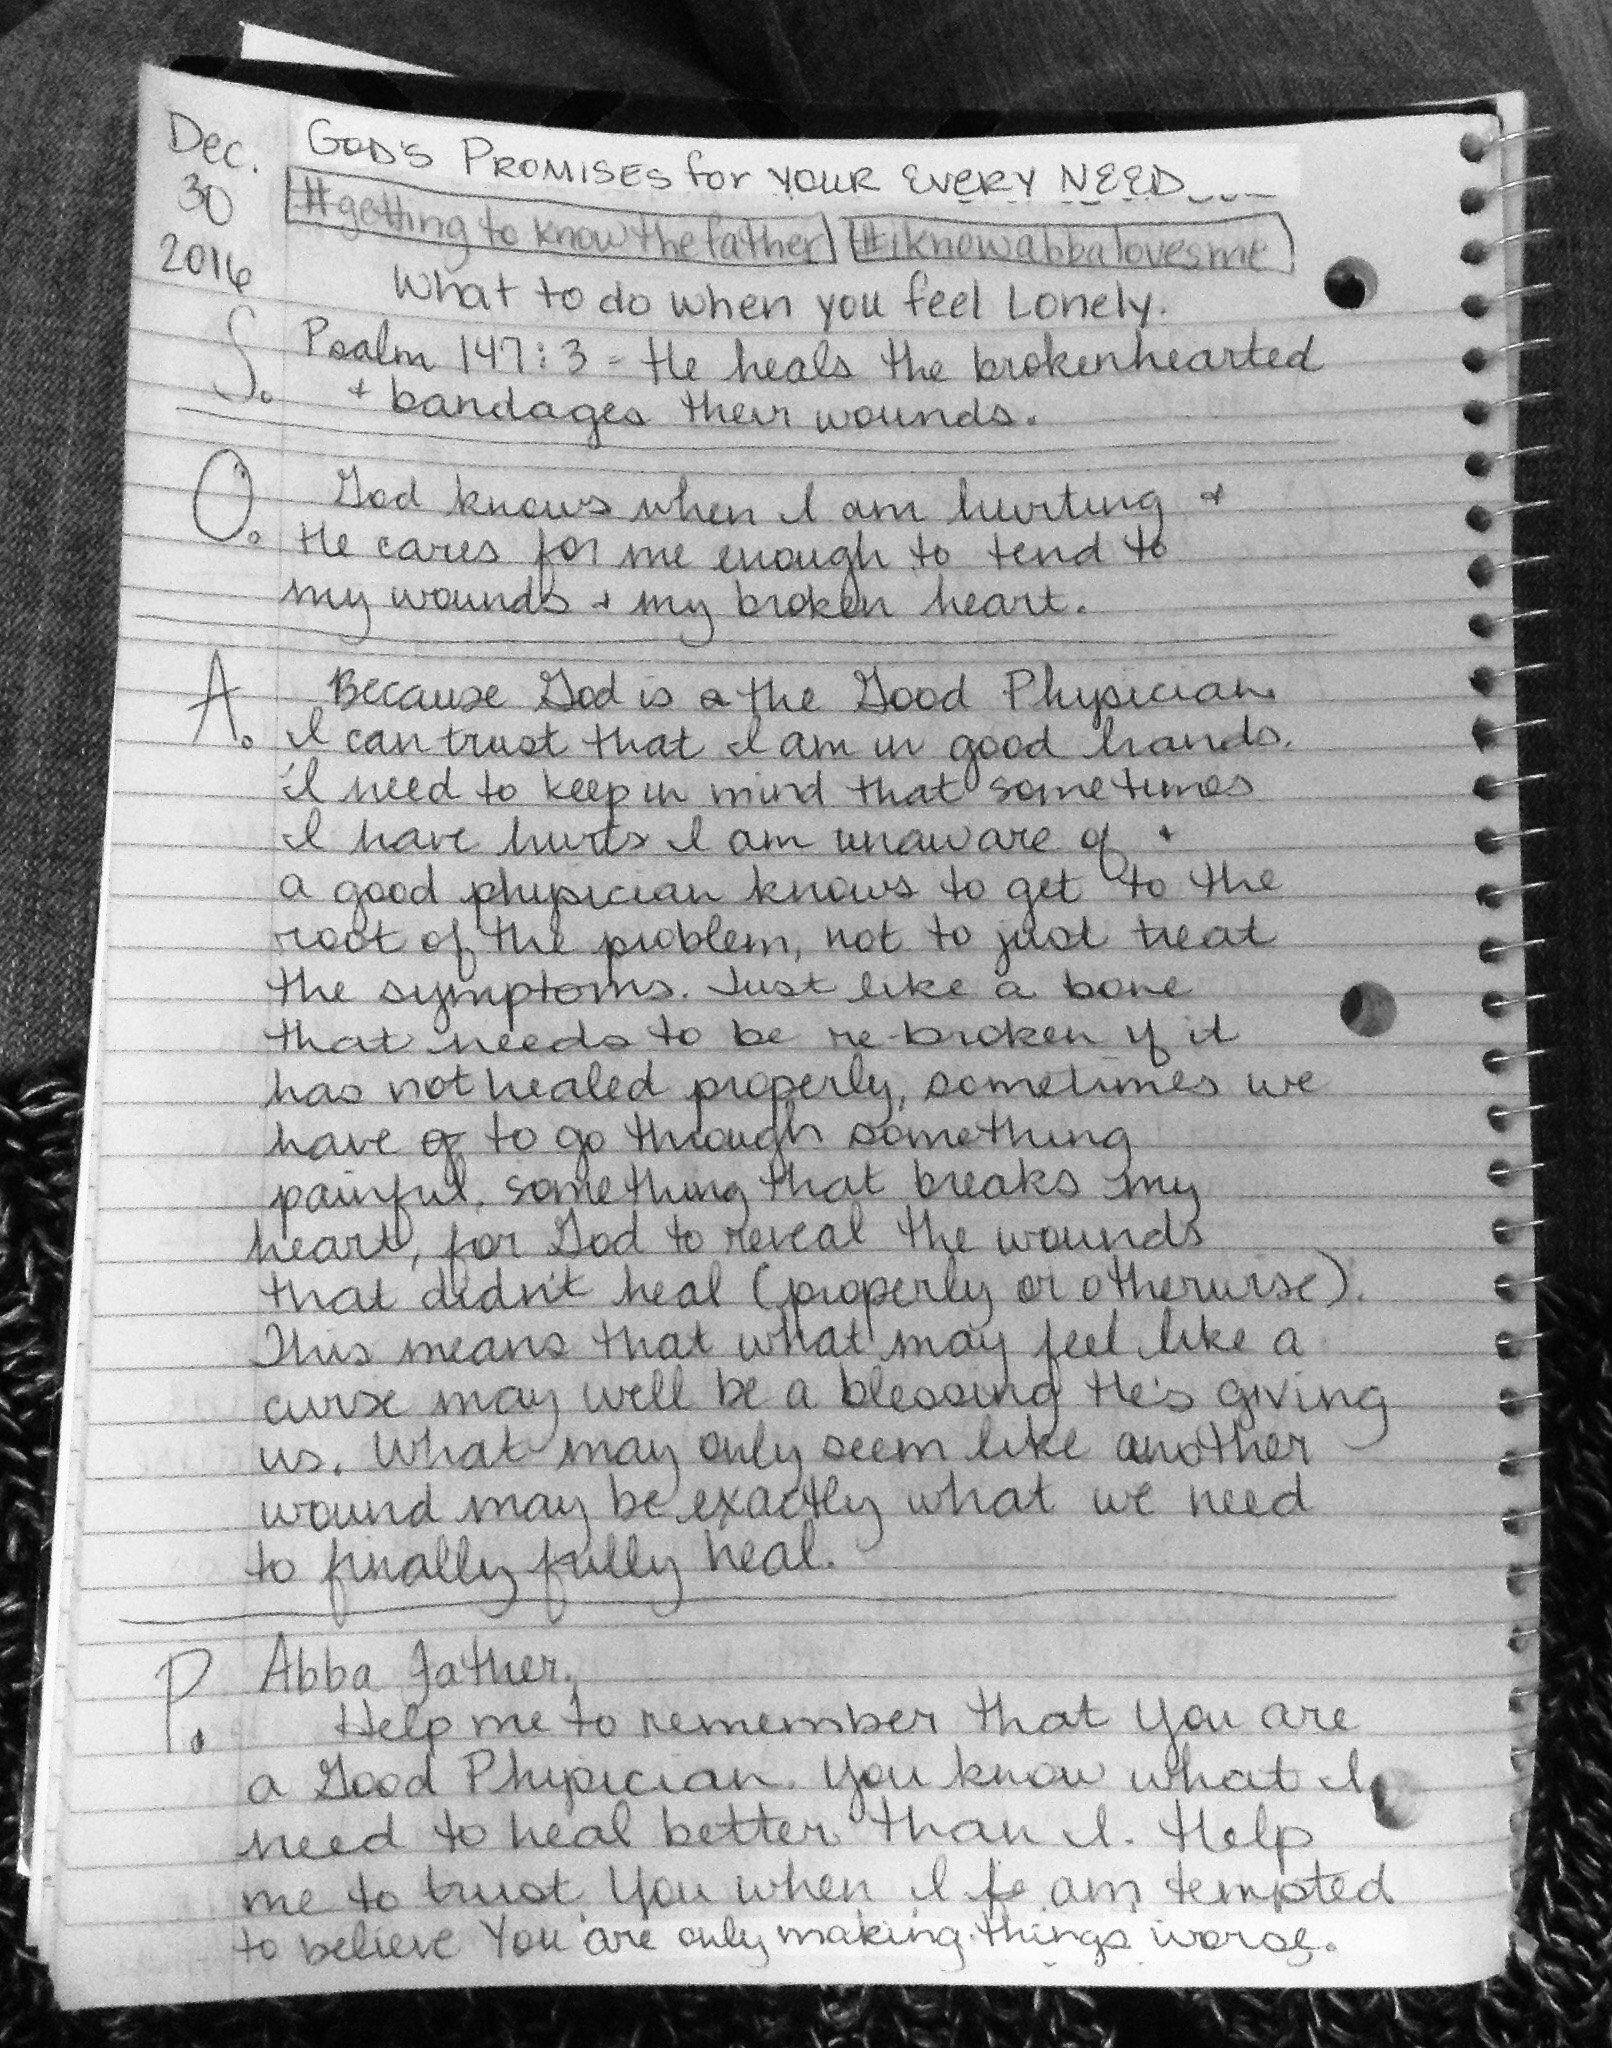 Dec.
30
2016
GOD'S PROMISES for YOUR EVERY NEED
#gettingtoknowthefather #iknowabbalovesme
What to do when you feel Lonely.
S. Psalm 147:3 - He heals the brokenhearted
+ bandages their wounds.
O. God knows when I am hurting +
He cares for me enough to tend to
my wounds + my broken heart.
A. Because God is a the Good Physician
I can trust that I am in good hands.
I need to keep in mind that sometimes
I have hurts I am unaware of +
a good physician knows to get to the
root of the problem, not to just treat
the symptoms. Just like a bone
that needs to be re-broken if it
has not healed properly, sometimes we
have to go through something
painful, something that breaks my
heart, for God to reveal the wounds
that didn't heal (properly or otherwise).
This means that what may feel like a
curse may well be a blessing He's giving
us. What may only seem like another
wound may be exactly what we need
to finally fully heal.
P. Abba Father,
Help me to remember that You are
a Good Physician. You know what I
need to heal better than I. Help
me to trust You when I am tempted
to believe You are only making things worse.